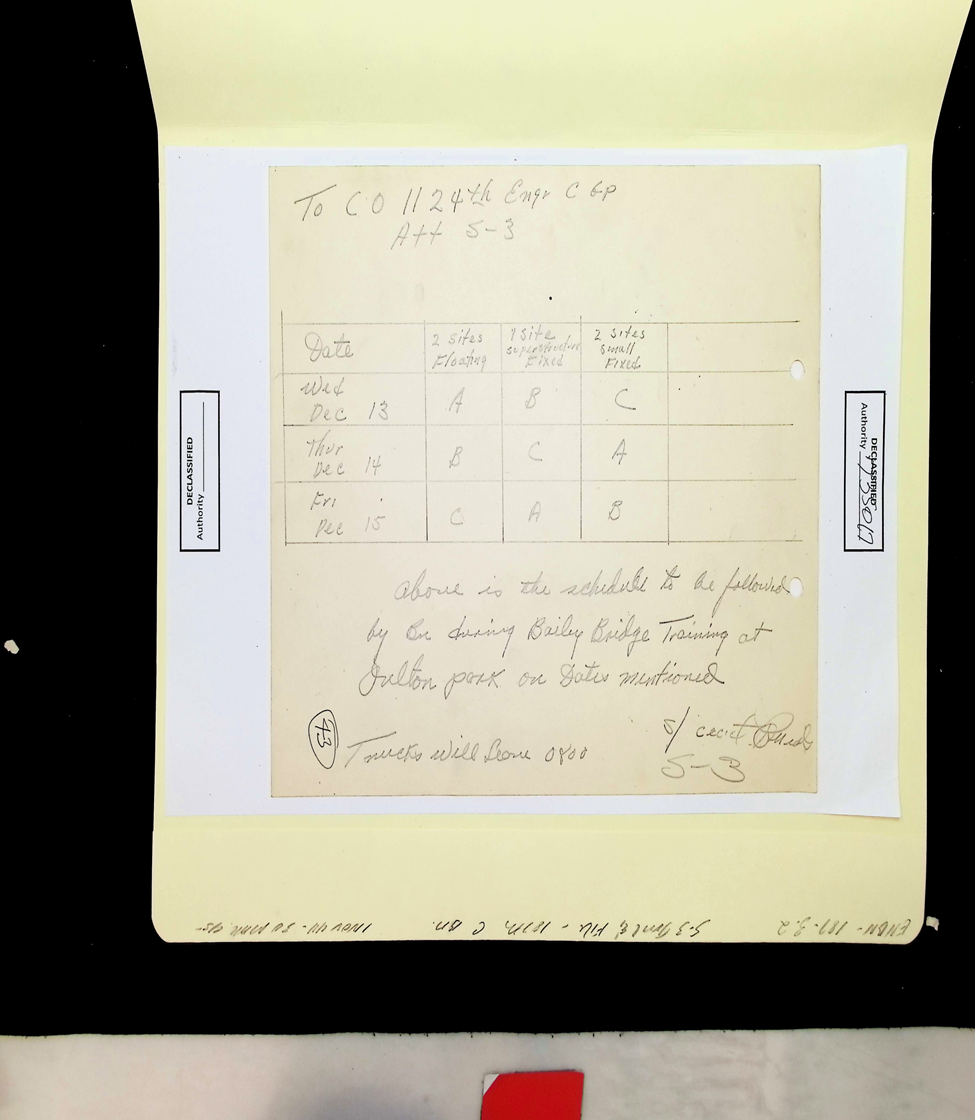 To CO 1124th Engr C Gp
Att S-3
Date
2 Sites Floating
1 Site superstructure Fixed
2 Sites small Fixed
Wed Dec 13
A
B
C
Thur Dec 14
B
C
A
Fri Dec 15
C
A
B
above is the schedule to be followed
by Bn during Bailey Bridge Training at
Fulton park on Dates mentioned
s/ cecil
S-3
43
Trucks Will Leave 0800
DECLASSIFIED
Authority
DECLASSIFIED
Authority
ENBN - 187-3.2
S-3 Jnl & File - 187th C Bn.
1 Nov 44 - 30 Mar 45